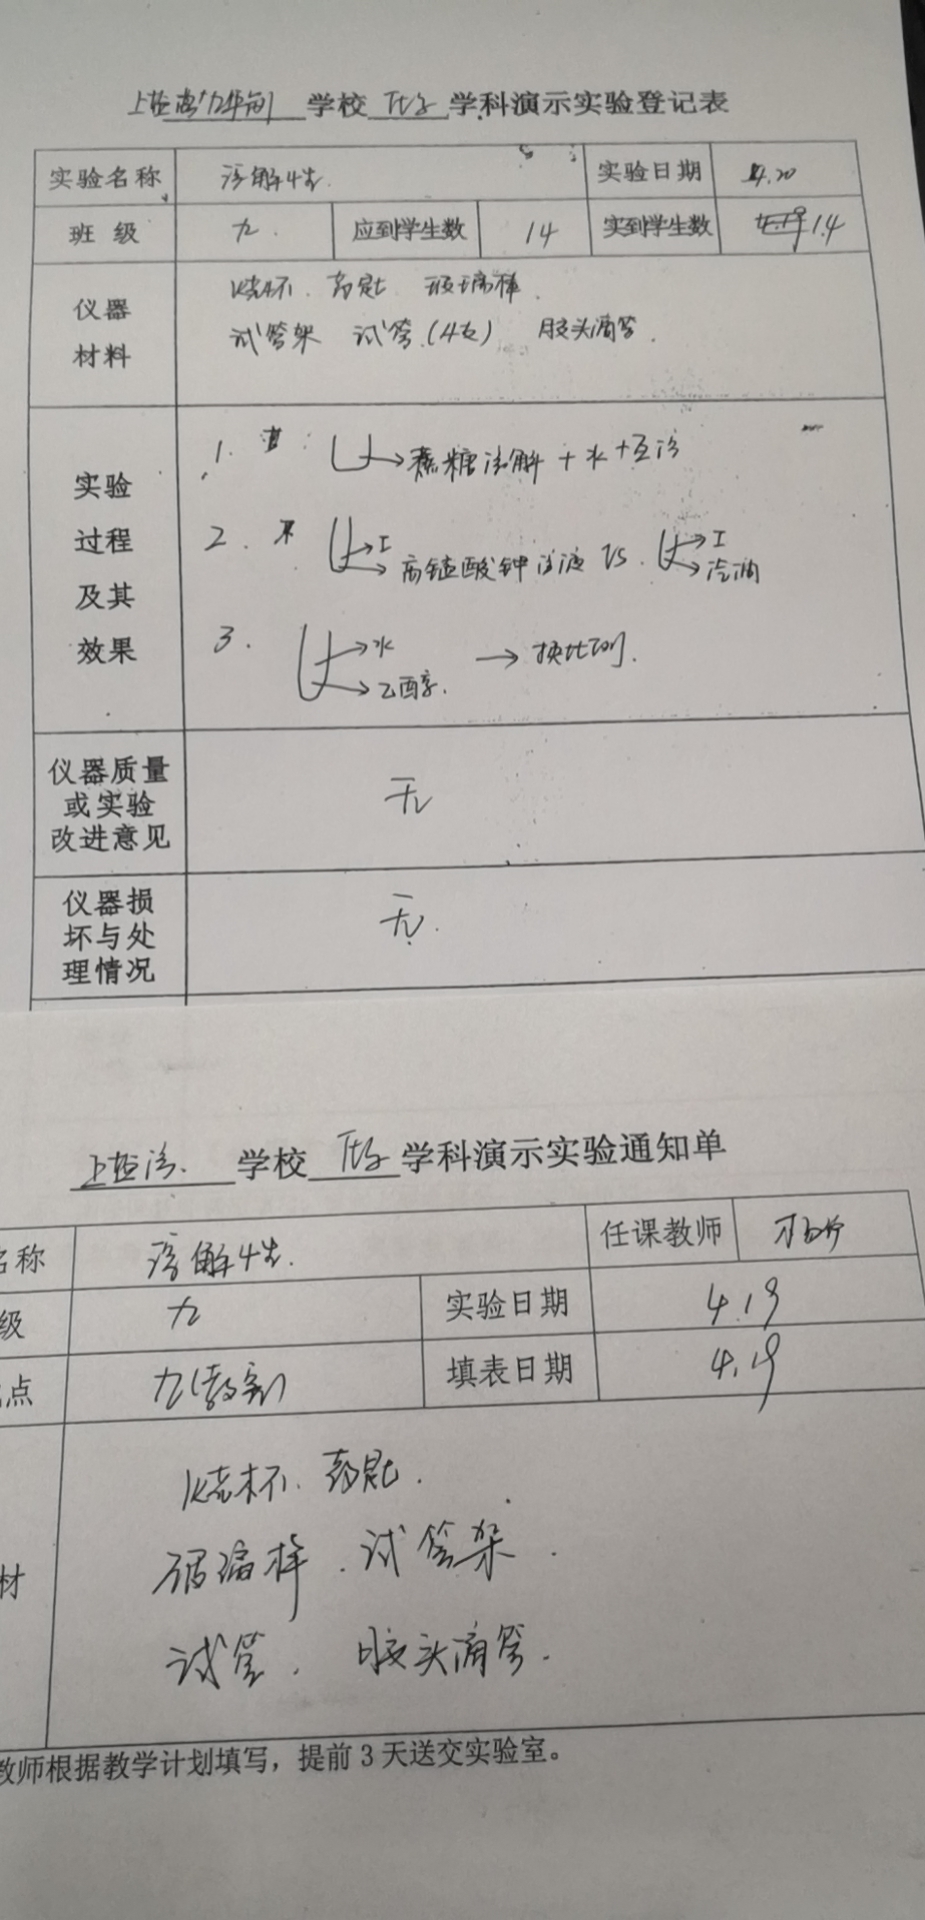 学校 化学 学科演示实验登记表
实验名称 溶解性. 实验日期 4.20
班级 九. 应到学生数 14 实到学生数 14
仪器材料 烧杯. 药匙 玻璃棒.
试管架 试管.(4支) 胶头滴管.
实验过程及其效果 1. : 蔗糖溶解 + 水 +
2. I 高锰酸钾溶液 VS. I 汽油
3. 水 乙醇. → 换比例.
仪器质量或实验改进意见 无
仪器损坏与处理情况 无.
学校 化学 学科演示实验通知单
名称 溶解性. 任课教师
级 九 实验日期 4.19
点 九(教室) 填表日期 4.19
材 烧杯. 药匙.
玻璃棒. 试管架.
试管. 胶头滴管.
教师根据教学计划填写，提前3天送交实验室。